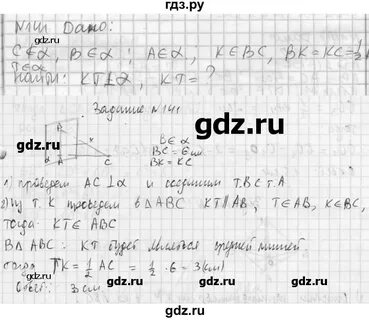 гдз.ру
№141 Дано:
C∉α, B∈α; A∈α, K∈BC, BK=KC=½
T∈α
Найти: KT⊥α, KT=?
gdz.ru gdz.ru
Задание №141
B
K
α A C
B∈α
BC=6см
BK=KC
1) проведем AC⊥α и соединим т.В с т.А
2) из т. К проведем в ΔABC KT∥AB, T∈AB, K∈BC,
тогда KT∈ABC
В ΔABC: KT будет являться средней линией
тогда TK=½AC=½·6=3(см)
Ответ: 3см
gdz.ru gdz.ru